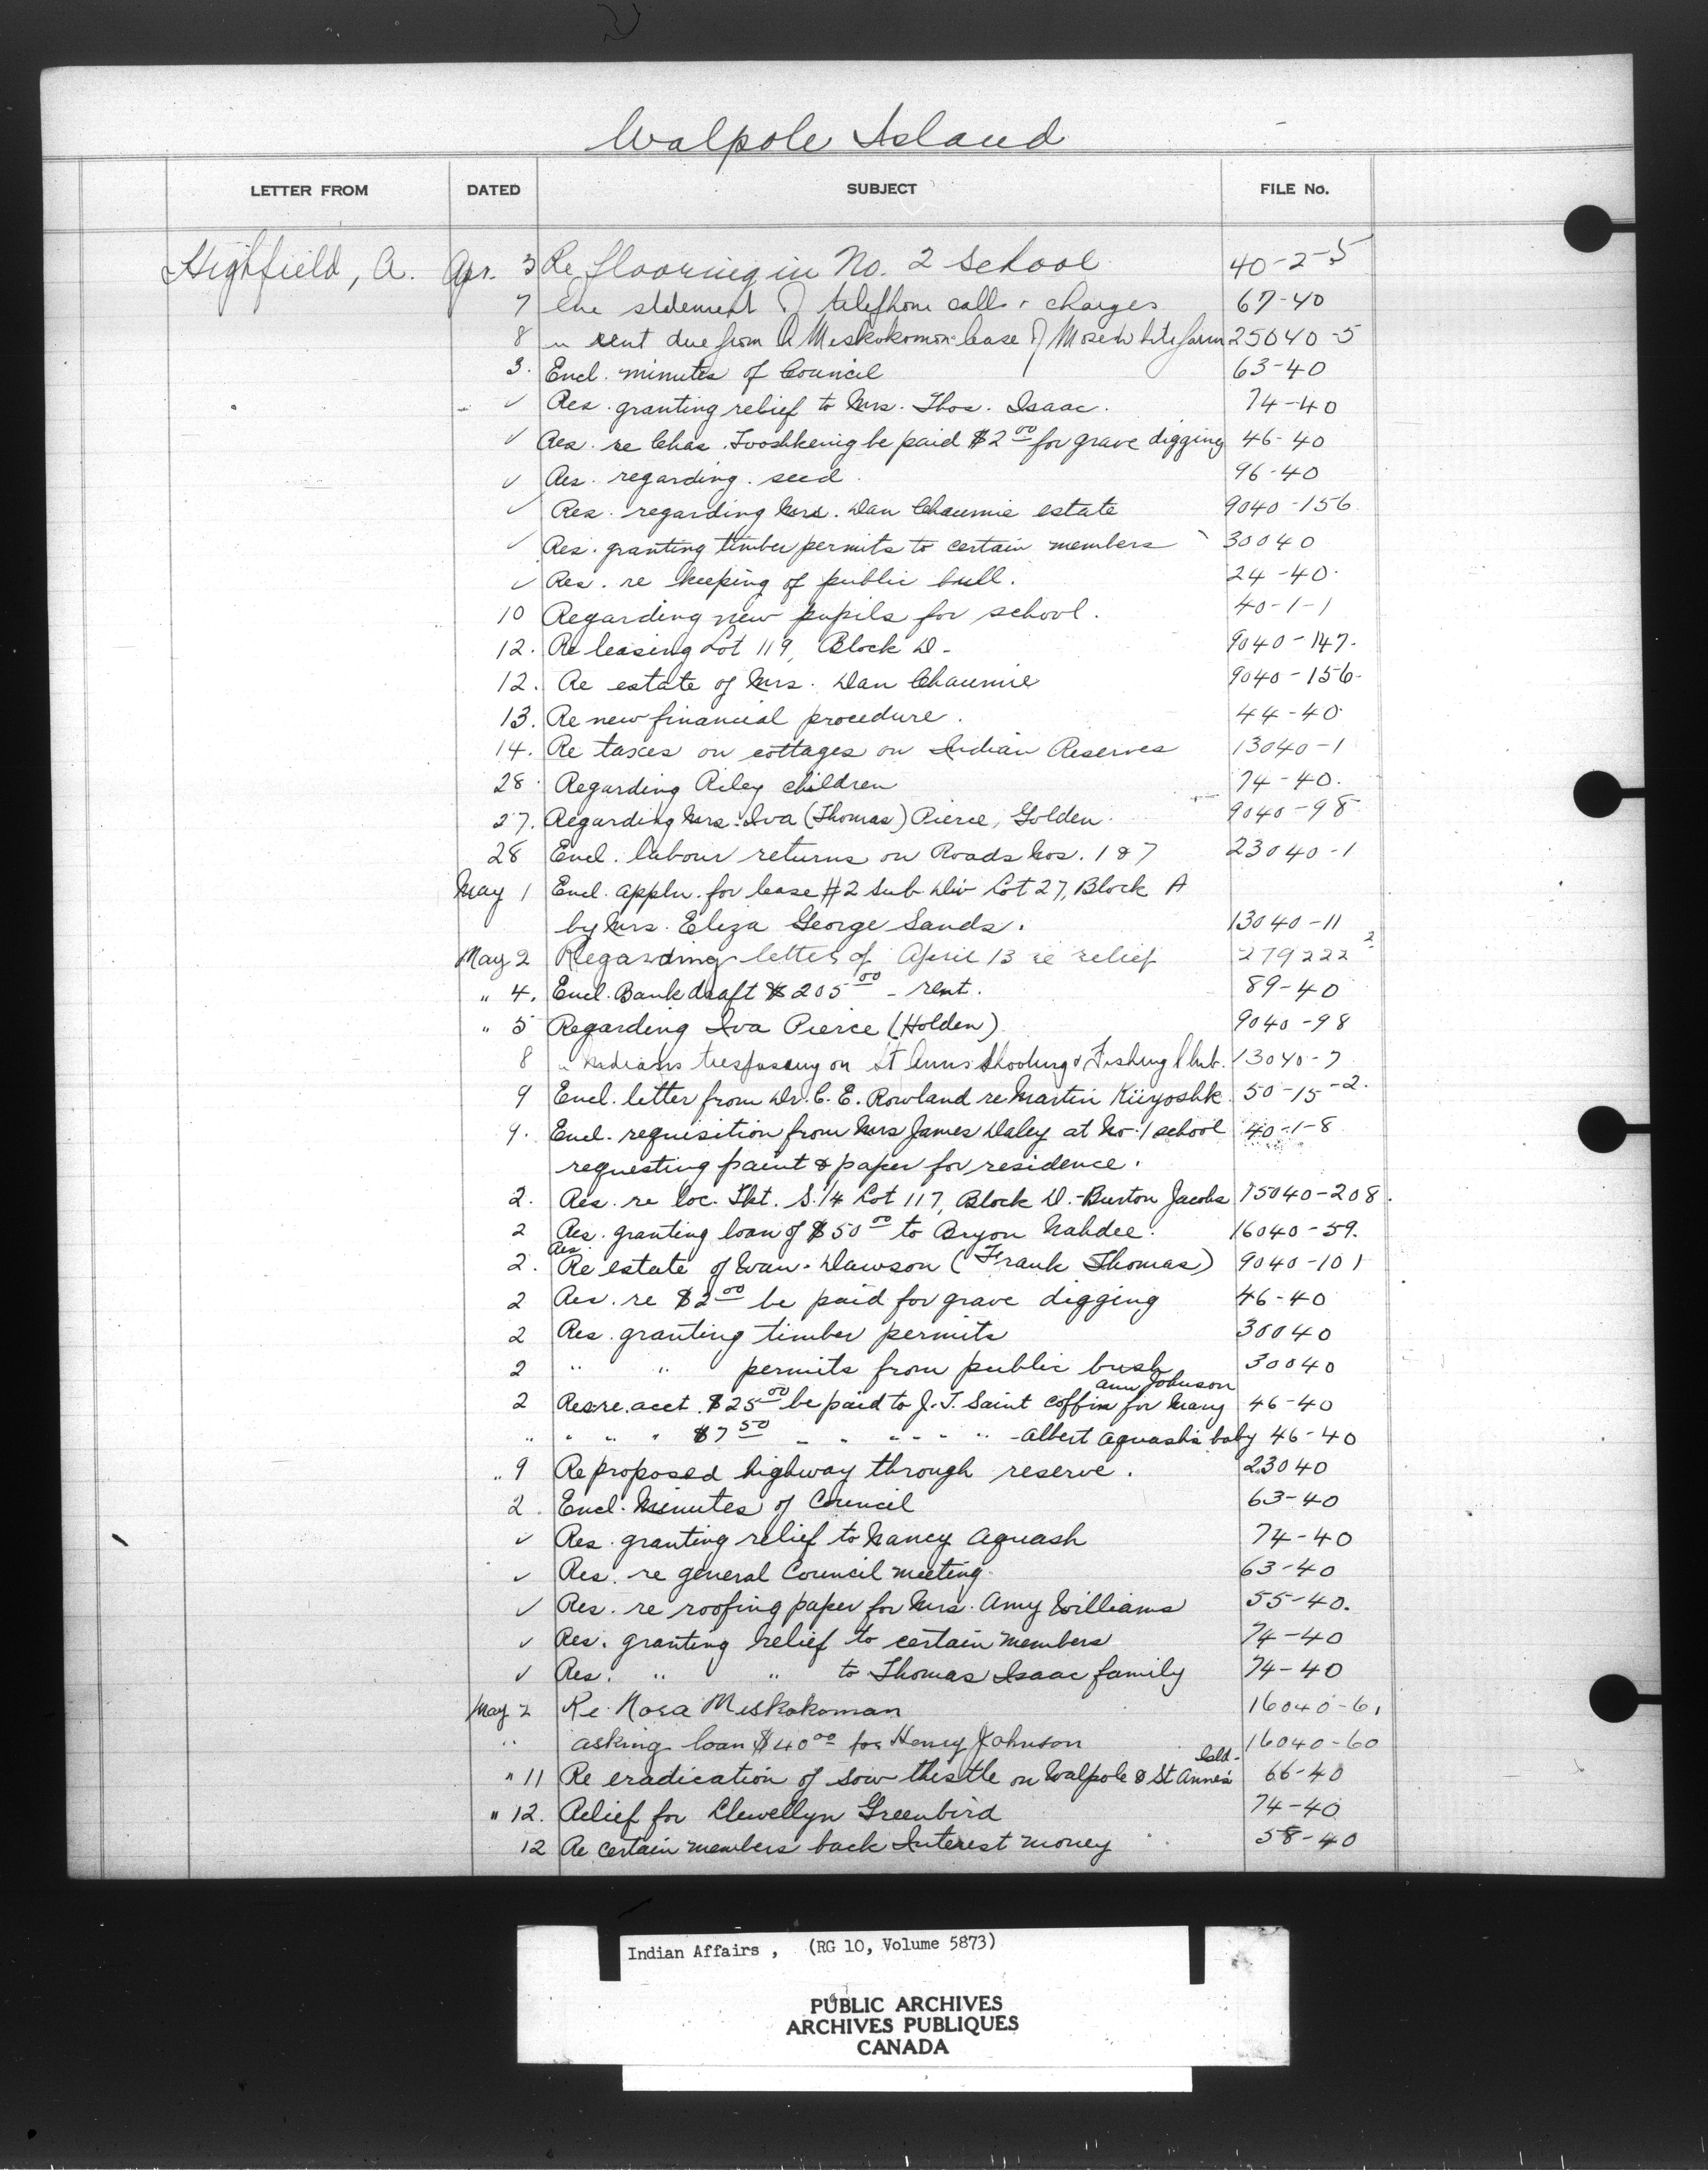 Walpole Island
LETTER FROM DATED SUBJECT FILE No.
Highfield, A. Apr. 3 Re flooring in No. 2 School 40-2-5
7 Enc statement of telephone calls & charges 67-40
8 " rent due from A Meskokomon lease of Mose White farm 25040-5
3. Encl. minutes of Council 63-40
✓ Res. granting relief to Mrs. Thos. Isaac. 74-40
✓ Res. re Chas. Tooshkenig be paid $2 00 for grave digging 46-40
✓ Res. regarding seed. 96-40
✓ Res. regarding Mrs. Dan Chaumie estate 9040-156
✓ Res. granting timber permits to certain members 30040
✓ Res. re keeping of public bull. 24-40.
10 Regarding new pupils for school. 40-1-1
12. Re leasing Lot 119, Block D- 9040-147.
12. Re estate of Mrs. Dan Chaumie 9040-156-
13. Re new financial procedure. 44-40
14. Re taxes on cottages on Indian Reserves 13040-1
28. Regarding Riley children 74-40.
27. Regarding Mrs. Iva (Thomas) Pierce, Golden. 9040-98
28 Encl. labour returns on Roads Nos. 1 & 7 23040-1
May 1 Encl. appln. for lease #2 Sub Div Lot 27, Block A
by Mrs. Eliza George Sands. 13040-11
May 2 Regarding letter of April 13 re relief 279222 2
" 4. Encl. Bank draft $205 00 - rent. 89-40
" 5 Regarding Iva Pierce (Holden) 9040-98
8 " Indians trespassing on St Anns Shooting & Fishing Club. 13040-7
9 Encl. letter from Dr. C. E. Rowland re Martin Kiiyoshk 50-15-2.
9. Encl. requisition from Mrs James Daley at No. 1 school 40-1-8
requesting paint & paper for residence.
2. Res. re loc. Tkt. S. 1/4 Lot 117, Block D.-Burton Jacobs 15040-208.
2 Res. granting loan of $50 00 to Bryon Nahdee. 16040-59.
2. Res. Re estate of Evan. Dawson (Frank Thomas) 9040-101
2 Res. re $2 00 be paid for grave digging 46-40
2 Res. granting timber permits 30040
2 " " permits from public bush 30040
2 Res. re. acct $25 00 be paid to J. T. Saint coffin for Mary Ann Johnson 46-40
" " " " $7 50 - " " - - " - Albert Aquash's baby 46-40
" 9 Re proposed highway through reserve. 23040
2. Encl. Minutes of Council 63-40
✓ Res. granting relief to Nancy Aquash 74-40
✓ Res. re general Council meeting. 63-40
✓ Res. re roofing paper for Mrs. Amy Williams 55-40.
✓ Res. granting relief to certain members 74-40
✓ Res. " " to Thomas Isaac family 74-40
May 2 Re Nora Meskokoman 16040-61
" asking loan $40 00 for Henry Johnson 16040-60
" 11 Re eradication of sow thistle on Walpole & St Anne's Isld- 66-40
" 12. Relief for Llewellyn Greenbird 74-40
12 Re certain members back Interest money 58-40
Indian Affairs , (RG 10, Volume 5873)
PUBLIC ARCHIVES
ARCHIVES PUBLIQUES
CANADA